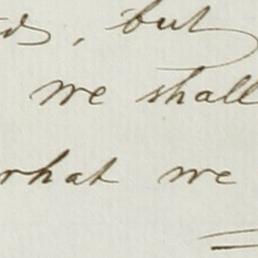 , but
we shall
what we